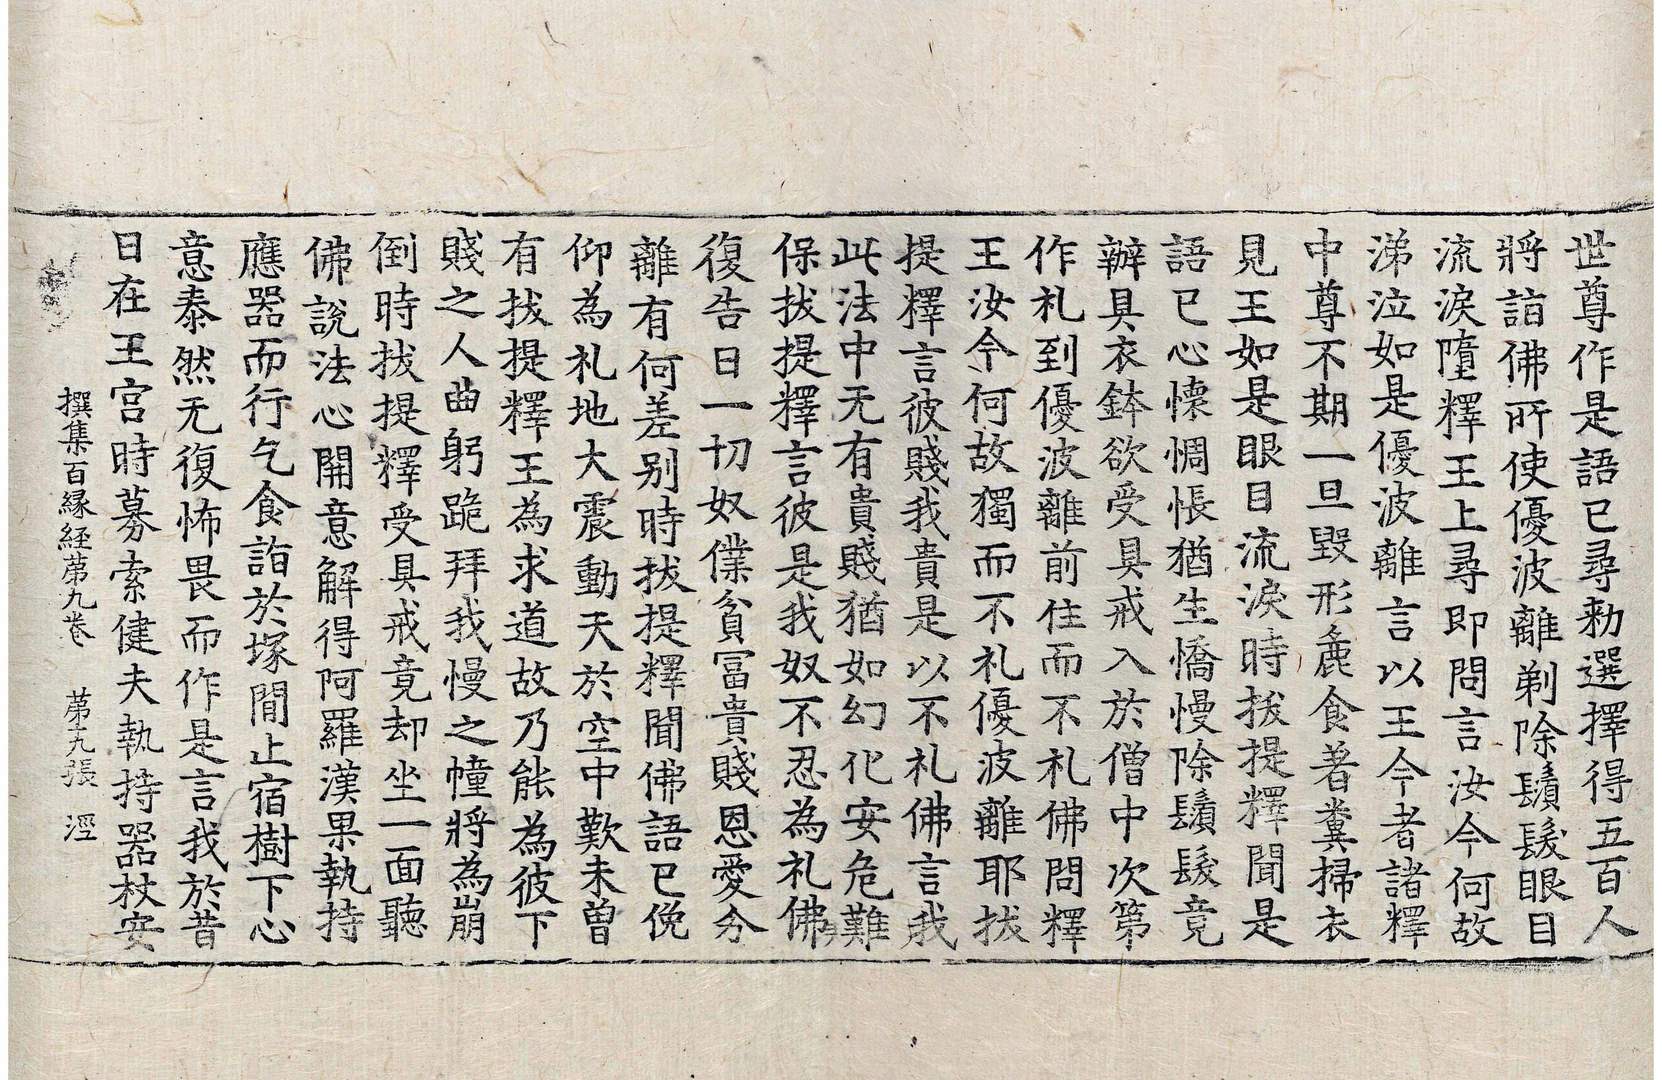 世尊作是語已尋勑選擇得五百人
將詣佛所使優波離剃除鬚髮眼目
流淚墮釋王上尋即問言汝今何故
涕泣如是優波離言以王今者諸釋
中尊不期一旦毀形麁食著糞掃衣
見王如是眼目流淚時拔提釋聞是
語已心懷惆悵猶生憍慢除鬚髮竟
辦具衣鉢欲受具戒入於僧中次第
作礼到優波離前住而不礼佛問釋
王汝今何故獨而不礼優波離耶拔
提釋言彼賤我貴是以不礼佛言我
此法中无有貴賤猶如幻化安危難
保拔提釋言彼是我奴不忍為礼佛
復告曰一切奴僕貧冨貴賤恩愛分
離有何差别時拔提釋聞佛語已俛
仰為礼地大震動天於空中歎未曽
有拔提釋王為求道故乃能為彼下
賤之人曲躬跪拜我慢之幢將為崩
倒時拔提釋受具戒竟却坐一面聽
佛說法心開意解得阿羅漢果執持
應器而行乞食詣於塚間止宿樹下心
意泰然无復怖畏而作是言我於昔
日在王宫時募索健夫執持器杖安
撰集百縁経苐九卷 苐九張 涇